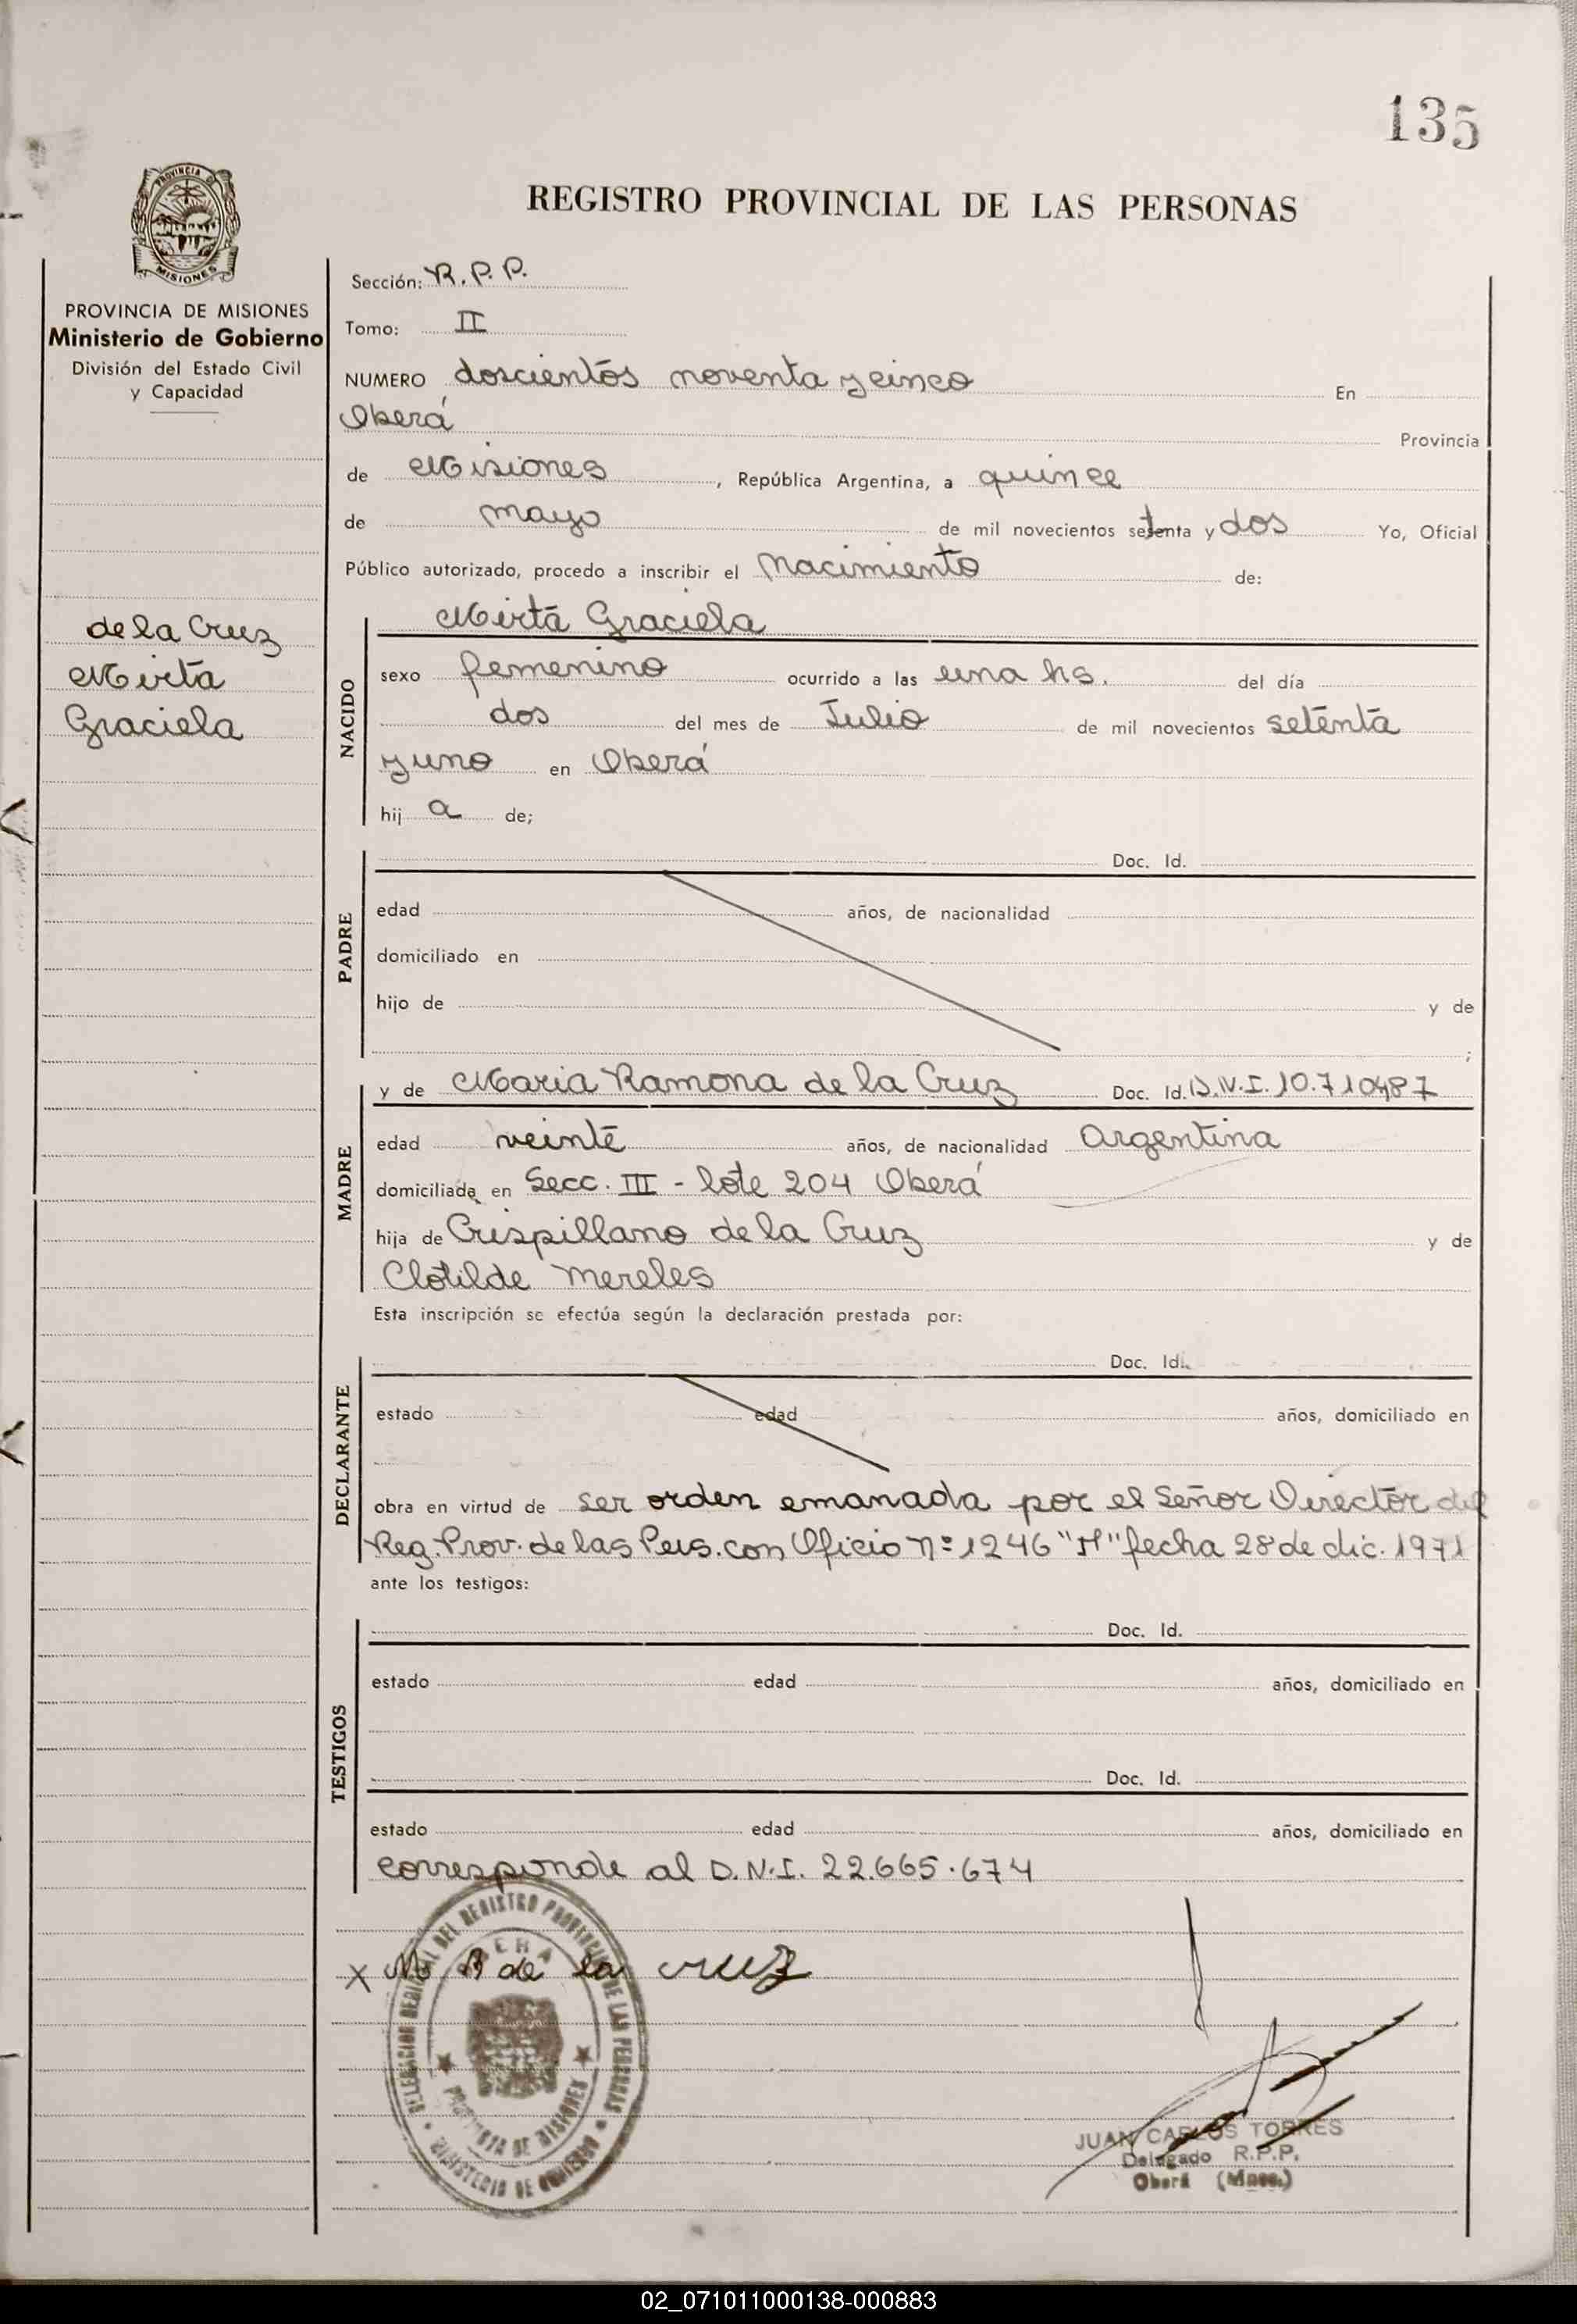 135
PROVINCIA DE
MISIONES
REGISTRO PROVINCIAL DE LAS PERSONAS
PROVINCIA DE MISIONES
Ministerio de Gobierno
División del Estado Civil
y Capacidad
de la Cruz
Mirta
Graciela
Sección: R.P.P.
Tomo: II
NUMERO doscientos noventa y cinco En
Oberá Provincia
de Misiones, República Argentina, a quince
de mayo de mil novecientos setenta y dos Yo, Oficial
Público autorizado, procedo a inscribir el Nacimiento de:
NACIDO
Mirta Graciela
sexo femenino ocurrido a las una hs. del día
dos del mes de Julio de mil novecientos setenta
y uno en Oberá
hij a de;
PADRE
Doc. Id.
edad años, de nacionalidad
domiciliado en
hijo de y de
;
MADRE
y de Maria Ramona de la Cruz Doc. Id. D.N.I. 10.710487
edad veinte años, de nacionalidad Argentina
domiciliada en Secc. III - lote 204 Oberá
hija de Crispillano de la Cruz y de
Clotilde Mereles
Esta inscripción se efectúa según la declaración prestada por:
DECLARANTE
Doc. Id.
estado edad años, domiciliado en
obra en virtud de ser orden emanada por el Señor Director del
Reg. Prov. de las Pers. con Oficio Nº 1246 "H" fecha 28 de dic. 1971
ante los testigos:
TESTIGOS
Doc. Id.
estado edad años, domiciliado en
Doc. Id.
estado edad años, domiciliado en
corresponde al D.N.I. 22.665.674
x M R de la cruz
DELEGACION DEL REGISTRO PROVINCIAL DE LAS PERSONAS
OBERA
PROVINCIA DE MISIONES
MINISTERIO DE GOBIERNO
JUAN CARLOS TORRES
Delegado R.P.P.
Oberá (Mnes.)
02_071011000138-000883